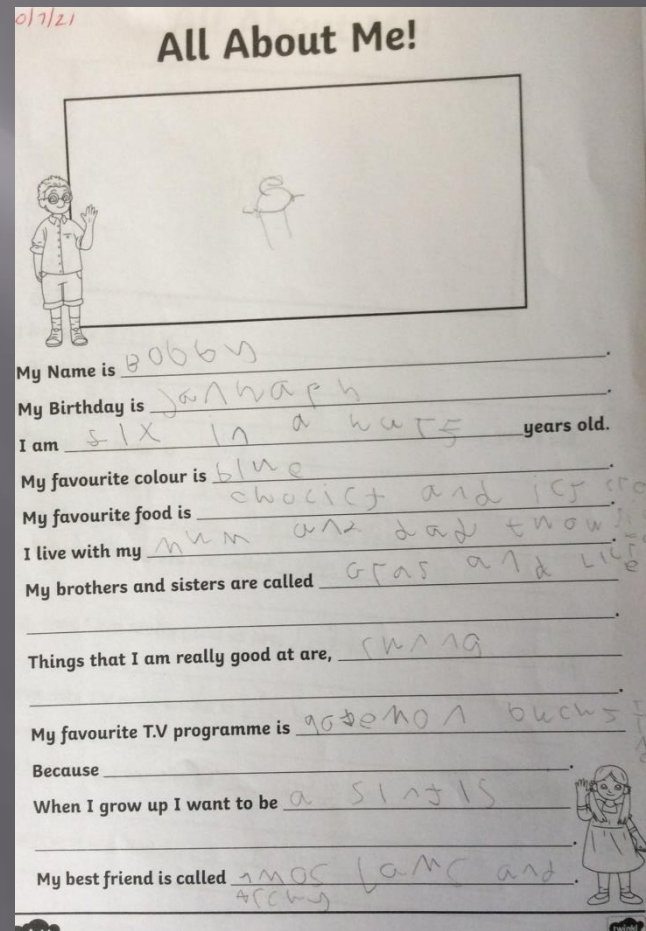 0/7/21
All About Me!
My Name is Bobby.
My Birthday is Januarph.
I am six in a harf years old.
My favourite colour is blue.
My favourite food is chocict and ics cre.
I live with my mum and dad.
My brothers and sisters are called Gras and
.
Things that I am really good at are, runng
.
My favourite T.V programme is
Because .
When I grow up I want to be a
.
My best friend is called and.
Archy
twinkl